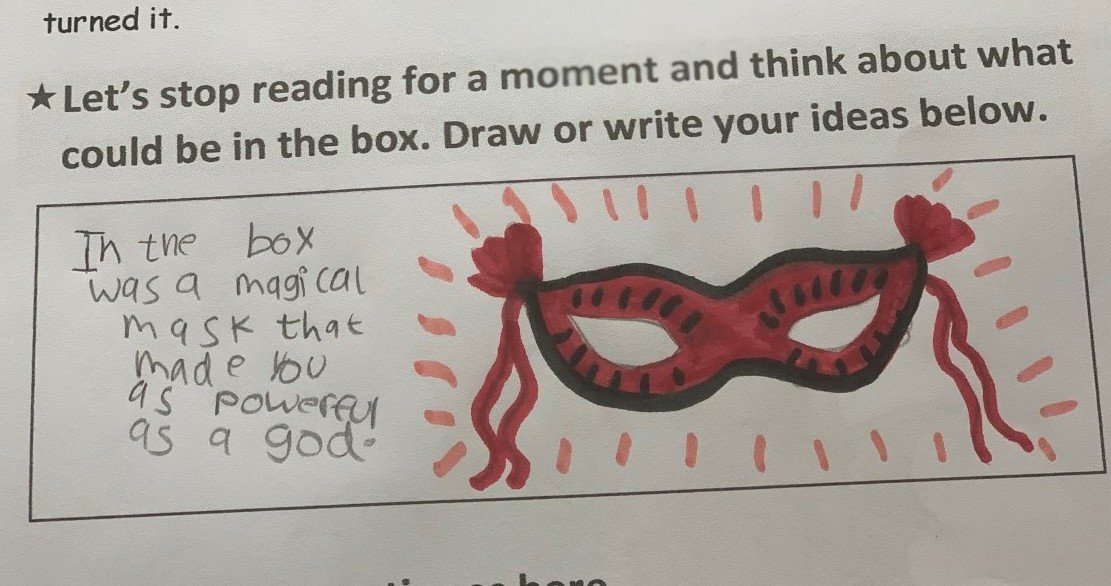 turned it.
★ Let's stop reading for a moment and think about what
could be in the box. Draw or write your ideas below.
In the box
was a magical
mask that
made you
as powerful
as a god.